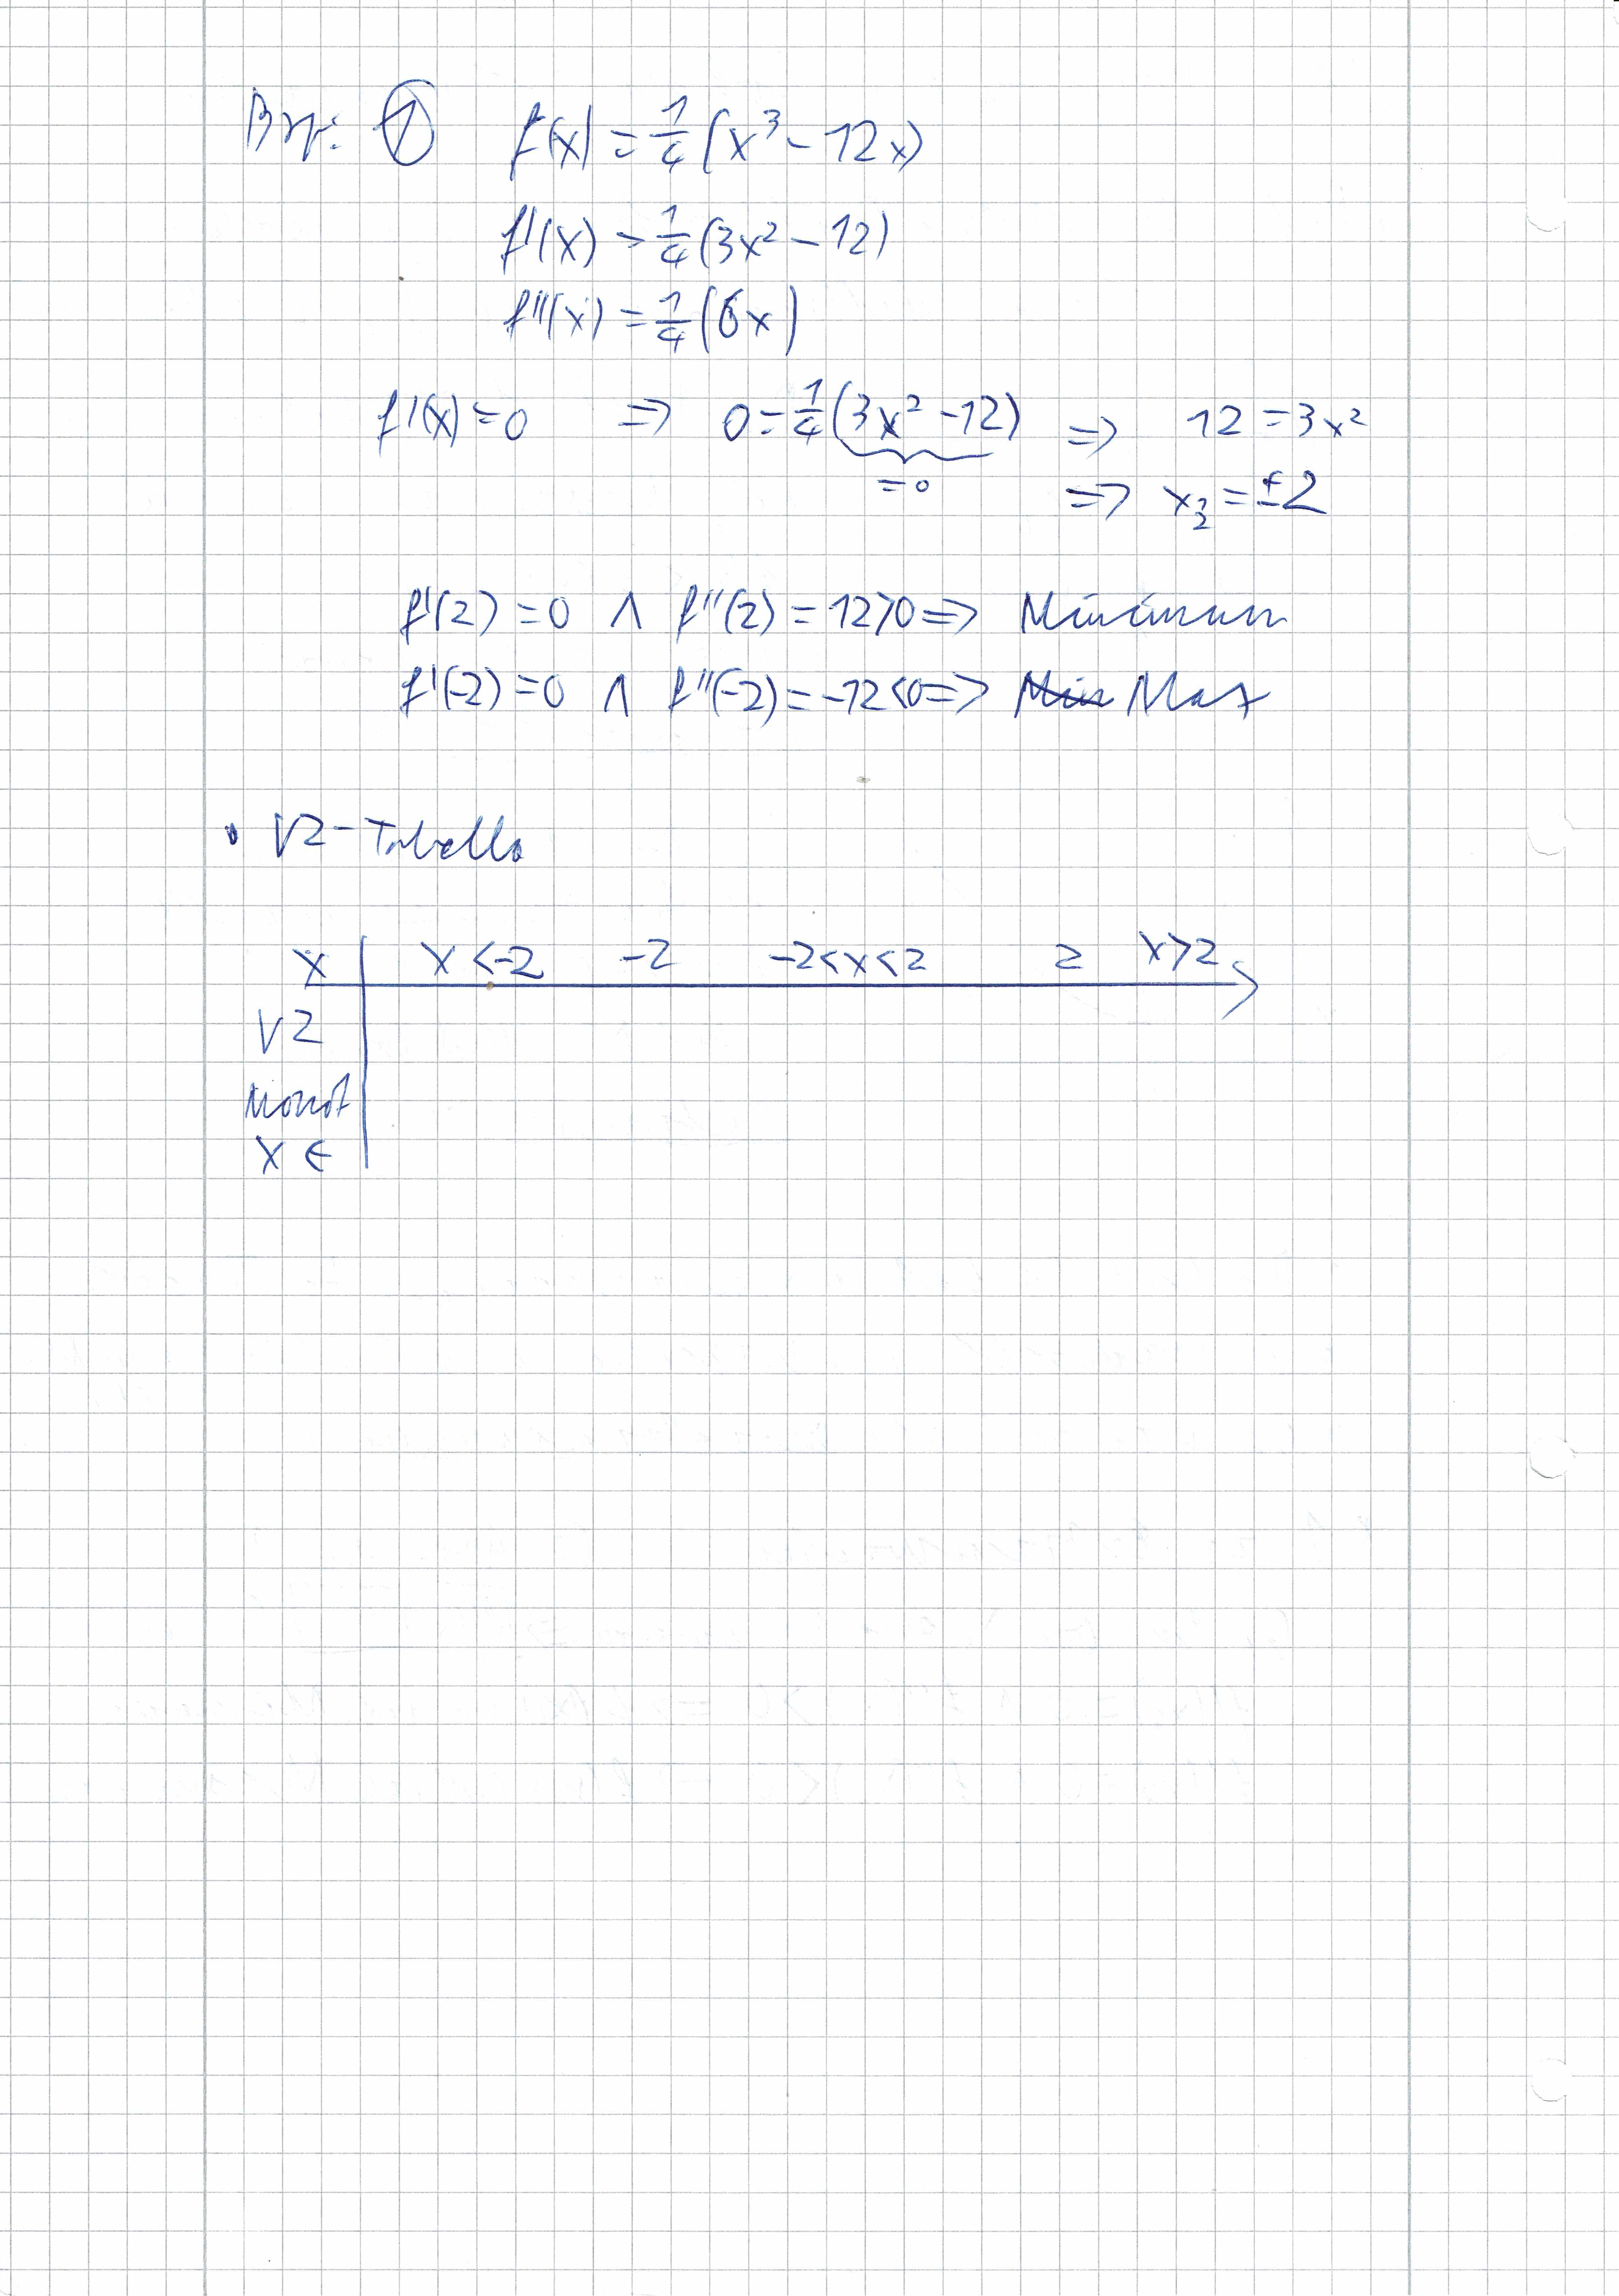 Bsp: ① f(x) = 1/4 (x³ - 12x)
f'(x) = 1/4 (3x² - 12)
f''(x) = 1/4 (6x)
f'(x) = 0 => 0 = 1/4 (3x² - 12) => 12 = 3x²
= 0 => x½ = ±2
f'(2) = 0 ∧ f''(2) = 12 > 0 => Minimum
f'(-2) = 0 ∧ f''(-2) = -12 < 0 => Min Max
• VZ-Tabelle
x | x < -2 -2 -2 < x < 2 2 x > 2
VZ
Monot
x ∈